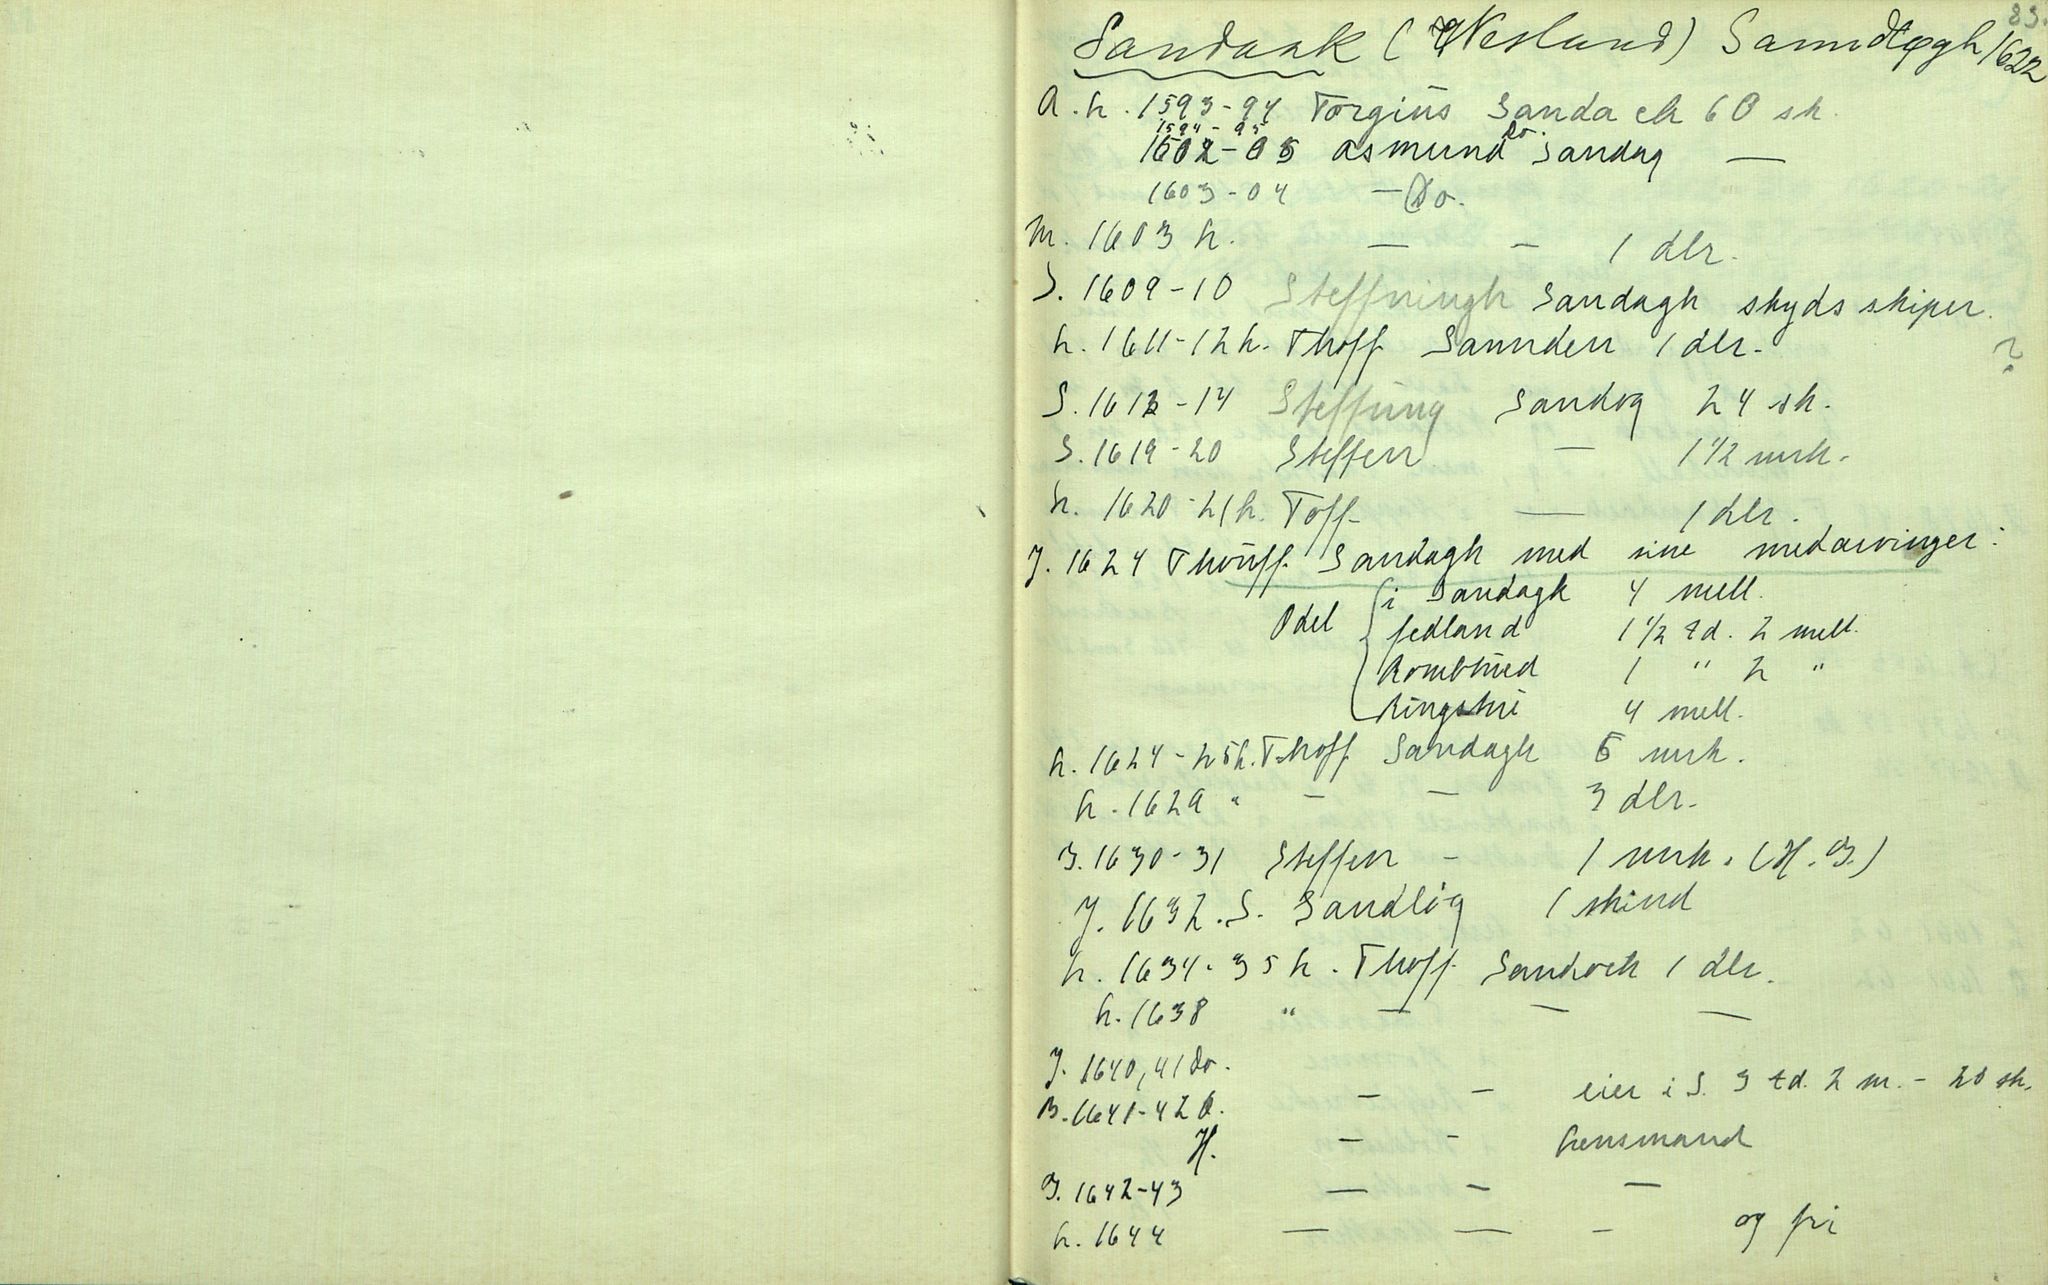 83.
Sandaak (Nesland) Sanndtøgh 1622
A. L. 1593-94 Torgius Sanda ek 60 sk.
1594-95 Do.
1602-03 Asmund Sandag —
1603-04 — Do.
M. 1603 L. — — 1 dlr.
S. 1609-10 Steffningh Sandagh skyds skiper.
L. 1611-12 L. Thoff Sannden 1 dlr. ?
S. 1613-14 Steffning Sandog 24 sk.
S. 1619-20 Steffen — 1 1/2 mrk.
L. 1620-21 L. Toff — 1 dlr.
J. 1624 Thouff Sandagh med sine medarvinger:
Odel { i Sandagk 4 mell.
Jedland 1 1/2 td. 2 mell.
Rombtued 1 " 2 "
Ringshui 4 mell.
L. 1624-25 L. Thoff Sandagh 5 mrk.
L. 1629 " — — 3 dlr.
B. 1630-31 Steffen — 1 mrk. (H. B.)
J. 1632. S. Sandløg 1 skind
L. 1634-35 L. Thoff Sandock 1 dlr.
L. 1638 " — — —
J. 1640, 41 Do.
B. 1641-42 O. — — eier i S. 3 td. 2 m. - 20 sk.
H. — — Lensmand
B. 1642-43 — — —
L. 1644 — — — og fri